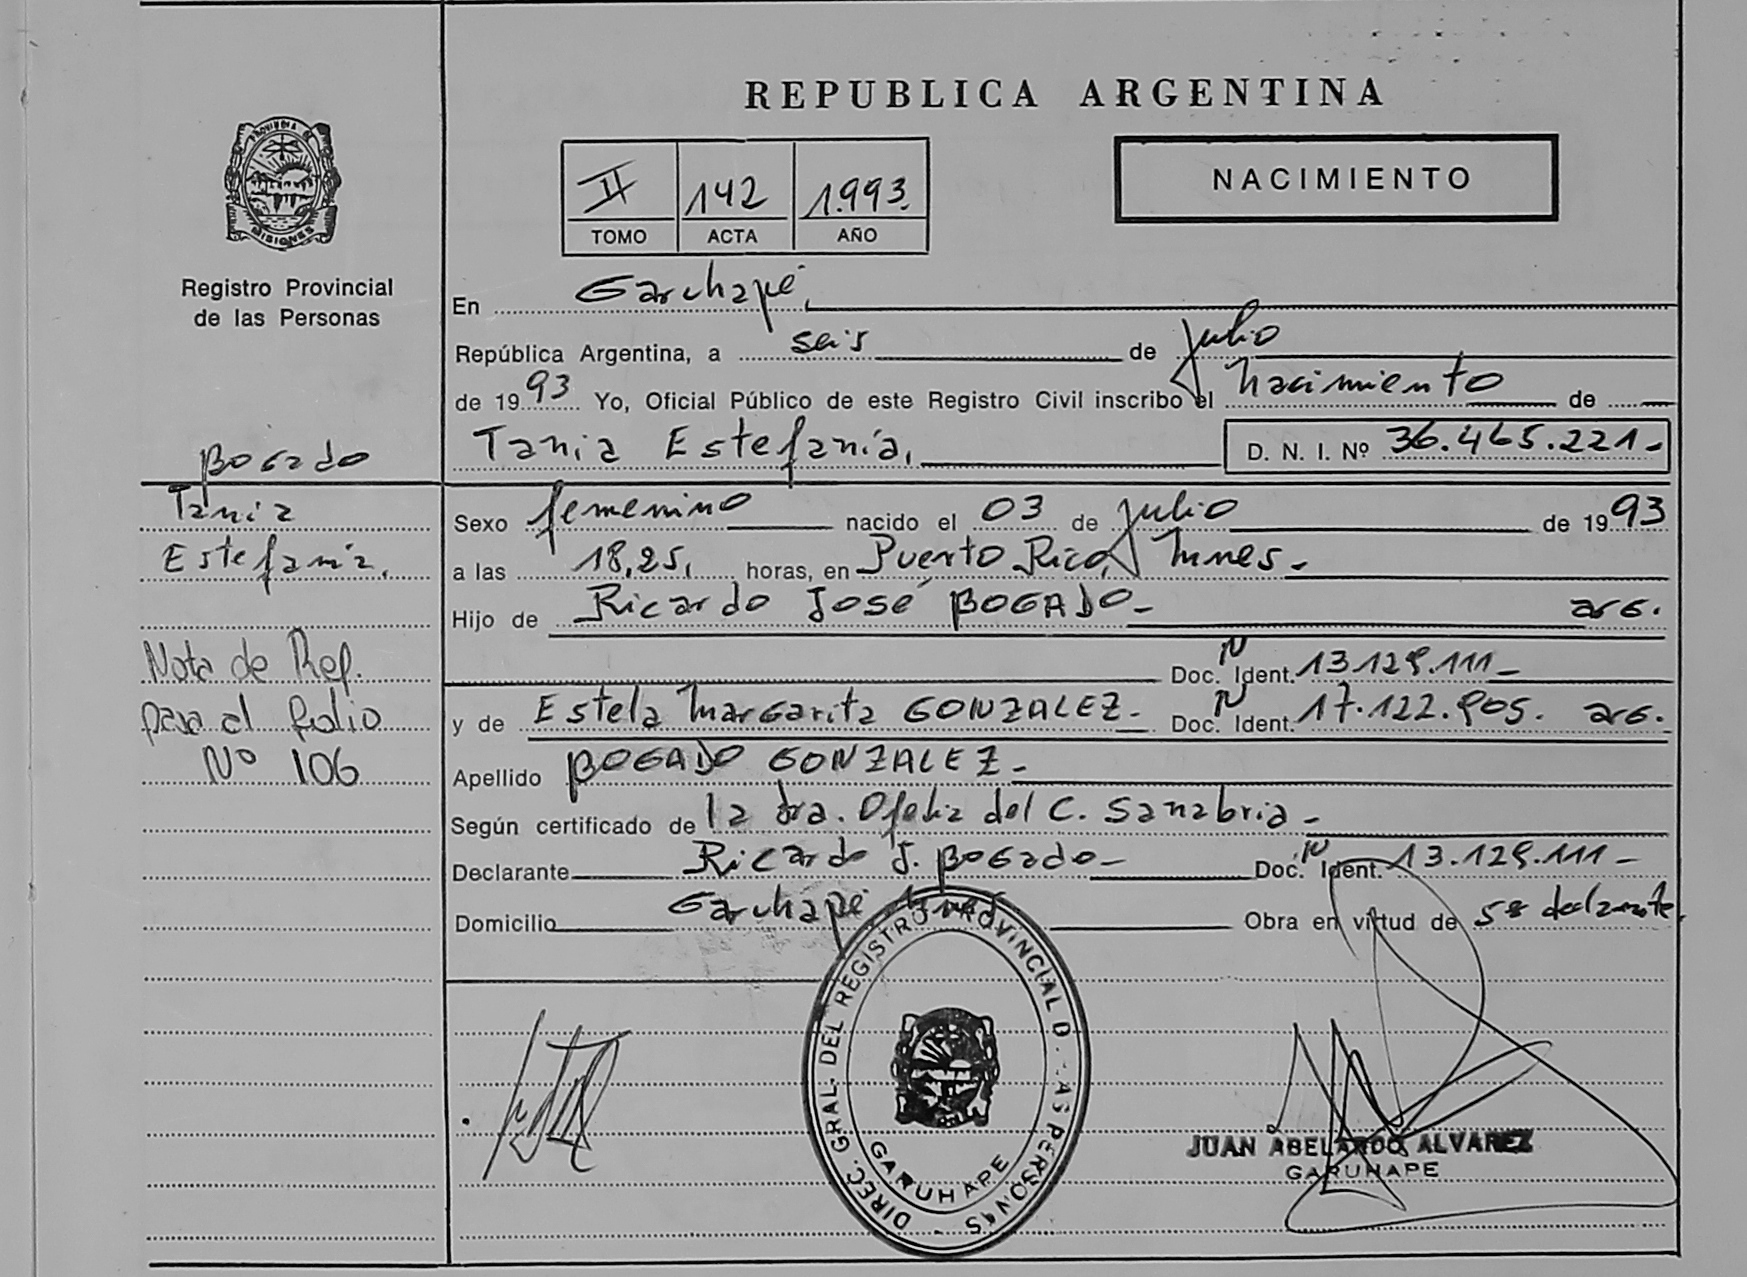 REPUBLICA ARGENTINA
PROVINCIA DE MISIONES
Registro Provincial
de las Personas
II 142 1.993.
TOMO ACTA AÑO
NACIMIENTO
En Garuhapé,
República Argentina, a seis de julio
de 1993 Yo, Oficial Público de este Registro Civil inscribo el nacimiento de
Tania Estefanía, D. N. I. Nº 36.465.221-
Bogado
Tania
Estefanía,
Nota de Ref.
pasa al folio
Nº 106
Sexo femenino nacido el 03 de julio de 1993
a las 18,25, horas, en Puerto Rico, Mnes-
Hijo de Ricardo José BOGADO- arg.
Doc. N Ident. 13.129.111-
y de Estela Margarita GONZALEZ- Doc. N Ident. 17.122.905. arg.
Apellido BOGADO GONZALEZ-
Según certificado de la dra. Ofelia del C. Sanabria-
Declarante Ricardo J. Bogado- Doc. N Ident. 13.129.111-
Domicilio Garuhapé Mnes Obra en virtud de ser declarante,
DIREC. GRAL. DEL REGISTRO PROVINCIAL D. LAS PERSONAS
GARUHAPE
JUAN ABELARDO ALVAREZ
GARUHAPE